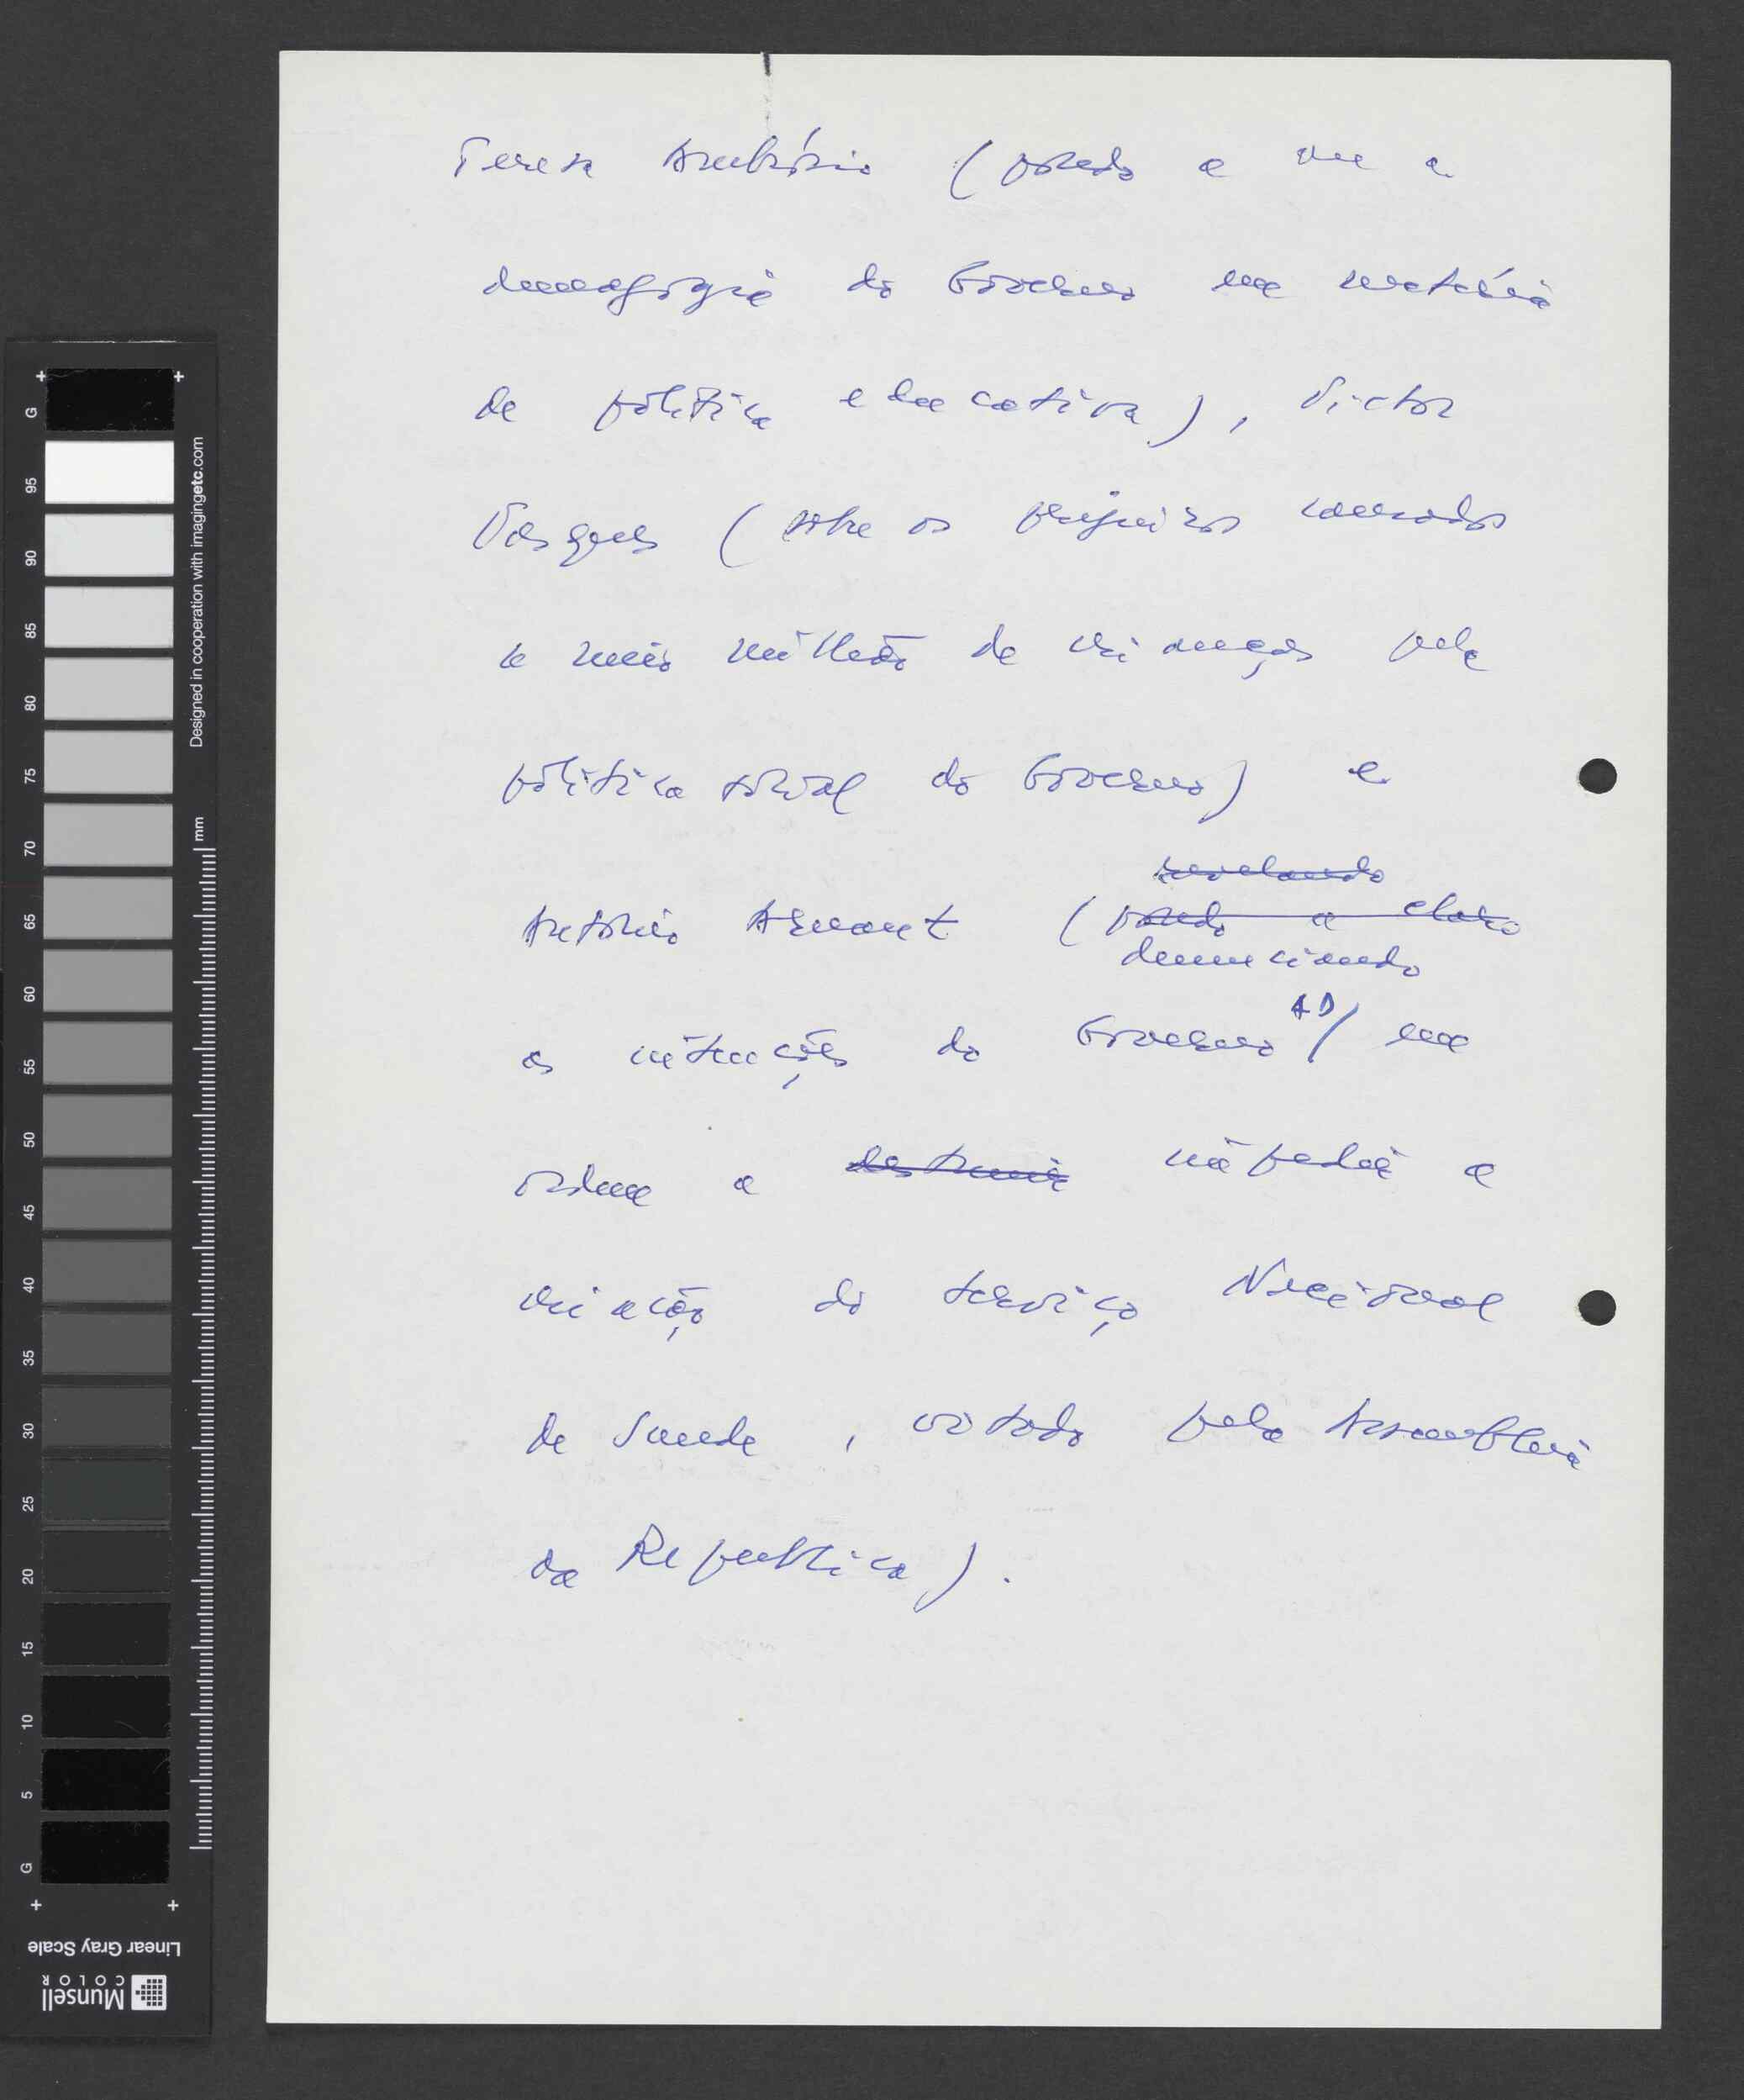 Teresa Ambrósio (pondo a nu a
demagogia do Governo em matéria
de política educativa), Victor
Vasques (sobre os prejuízos causados
a meio milhão de crianças pela
política social do Governo) e
revelando
António Arnaut (pondo a claro
denunciando
as intenções do Governo AD) em
ordem a destruir impedir a
criação do Serviço Nacional
de Saúde, votado pela Assembleia
da República).
G
95
90
85
80
75
70
65
60
55
50
45
40
35
30
25
20
15
10
5
G
mm
Designed in cooperation with imagingetc.com
Linear Gray Scale
Munsell
COLOR